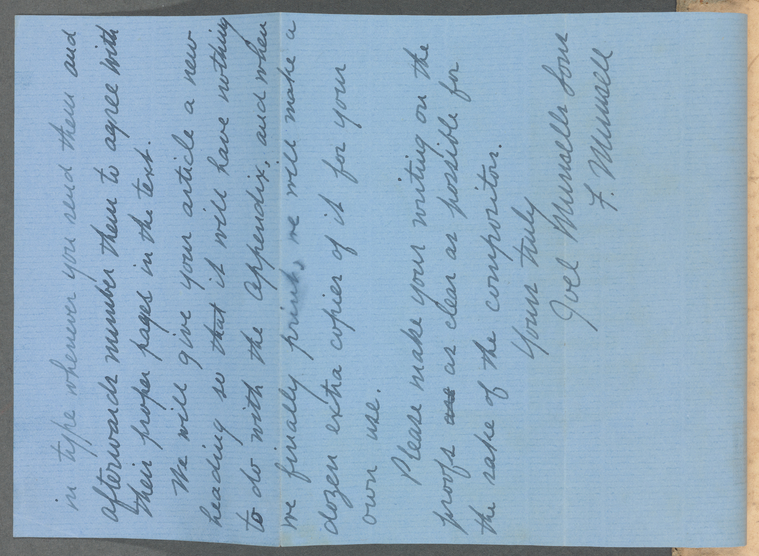 in type whenever you send them and
afterwards number them to agree with
their proper pages in the text.
We will give your article a new
heading so that it will have nothing
to do with the appendix, and when
we finally print, we will make a
dozen extra copies of it for your
own use.
Please make your writing on the
proofs as clear as possible for
the sake of the compositors.
Yours truly
Joel Munsells Sons
F. Munsell